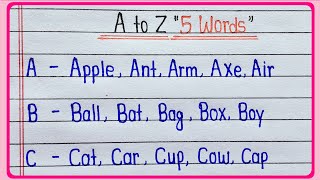 A to Z "5 Words"
A - Apple, Ant, Arm, Axe, Air
B - Ball, Bat, Bag, Box, Boy
C - Cat, Car, Cup, Cow, Cap